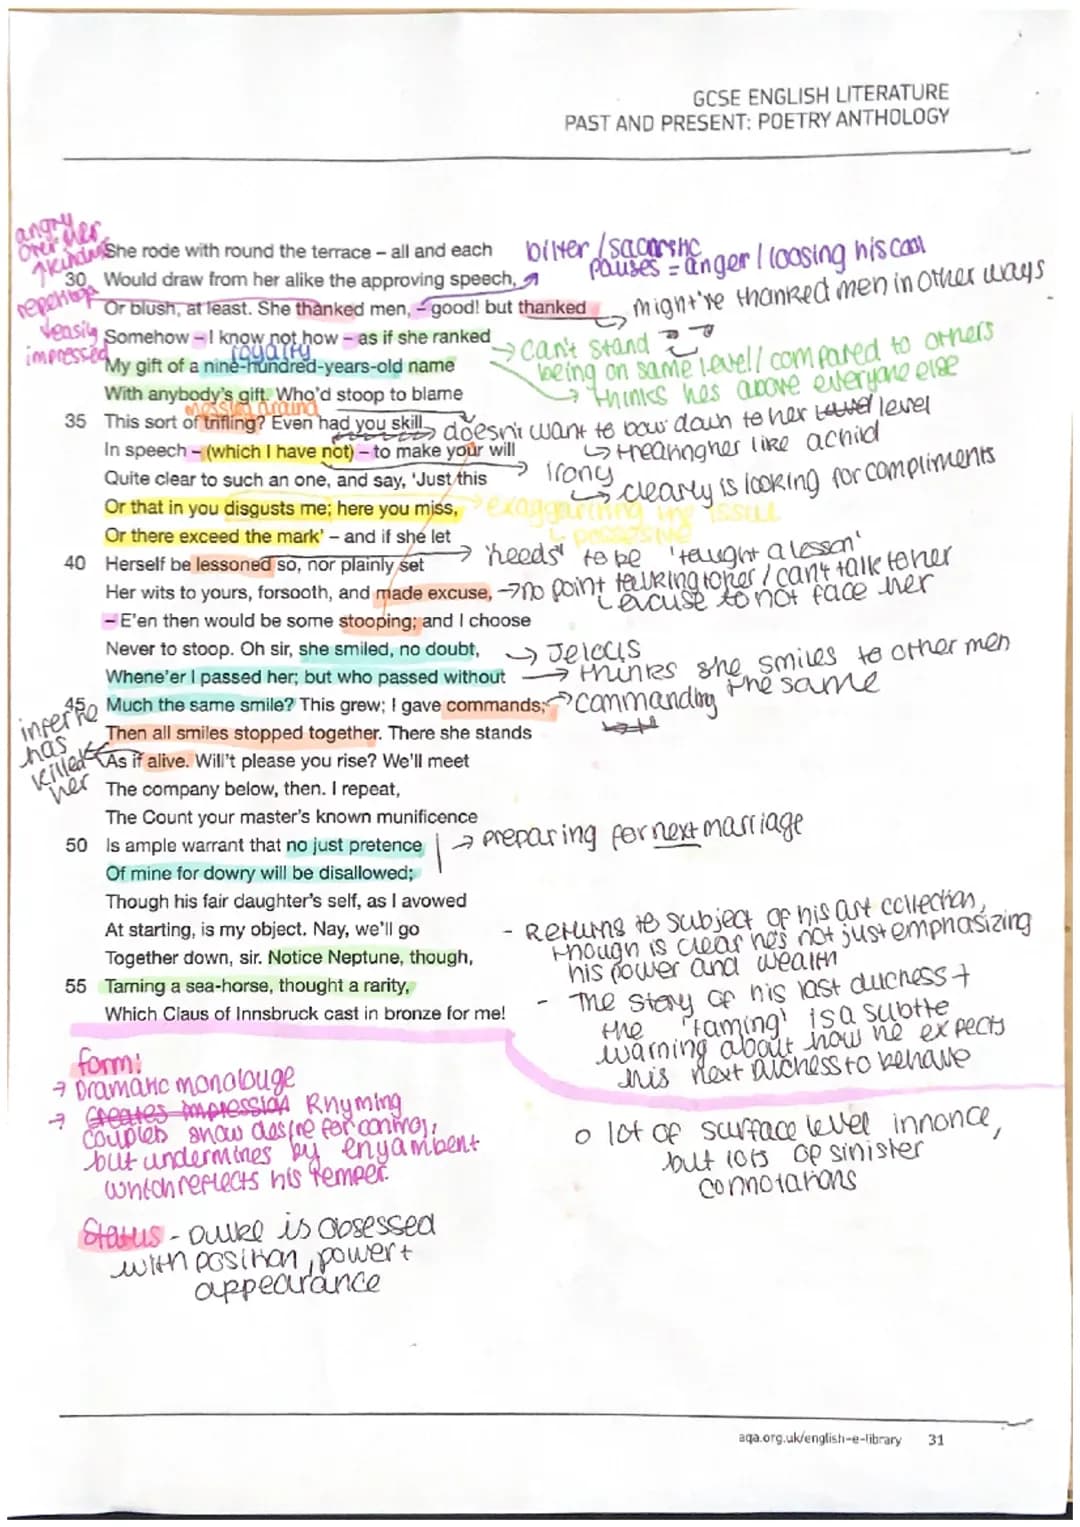 GCSE ENGLISH LITERATURE
PAST AND PRESENT: POETRY ANTHOLOGY
angry
over her
kindness
She rode with round the terrace – all and each
bitter / sacarstic
pauses = anger / loosing his cool
30 Would draw from her alike the approving speech,
repetition
Or blush, at least. She thanked men, – good! but thanked
might've thanked men in other ways
→ easily
impressed
Somehow – I know not how – as if she ranked
royalty
My gift of a nine-hundred-years-old name
→ Can't stand
being on same level / compared to others
→ thinks hes above everyone else
With anybody's gift. Who'd stoop to blame
messing around
35 This sort of trifling? Even had you skill
doesn't want to bow down to her level
↳ treating her like a child
In speech – (which I have not) – to make your will
→ irony
↳ clearly is looking for compliments
Quite clear to such an one, and say, 'Just this
Or that in you disgusts me; here you miss,
→ exaggarating the issue
↳ possesive
Or there exceed the mark' – and if she let
→ 'needs' to be 'taught a lesson'
40 Herself be lessoned so, nor plainly set
Her wits to yours, forsooth, and made excuse,
→ no point talking to her / can't talk to her
↳ excuse to not face her
– E'en then would be some stooping; and I choose
Never to stoop. Oh sir, she smiled, no doubt,
→ Jelous
Whene'er I passed her; but who passed without
→ thinks she smiles to other men
the same
45 Much the same smile? This grew; I gave commands;
→ commanding
Then all smiles stopped together. There she stands
infer he
has
killed
her
As if alive. Will't please you rise? We'll meet
The company below, then. I repeat,
The Count your master's known munificence
50 Is ample warrant that no just pretence
→ preparing for next marriage
Of mine for dowry will be disallowed;
Though his fair daughter's self, as I avowed
At starting, is my object. Nay, we'll go
Together down, sir. Notice Neptune, though,
55 Taming a sea-horse, thought a rarity,
Which Claus of Innsbruck cast in bronze for me!
- Returns to subject of his art collection,
though is clear he's not just emphasizing
his power and wealth
- The story of his last duchess +
the 'taming' is a subtle
warning about how he expects
his next Duchess to behave
form:
→ Dramatic monolouge
→ Creates impression Rhyming
couplets show desire for control,
but undermines by enjambent
which reflects his temper.
o lot of surface level innonce,
but lots of sinister
connotations
Status - Duke is obsessed
with position, power +
appearance
aqa.org.uk/english-e-library 31